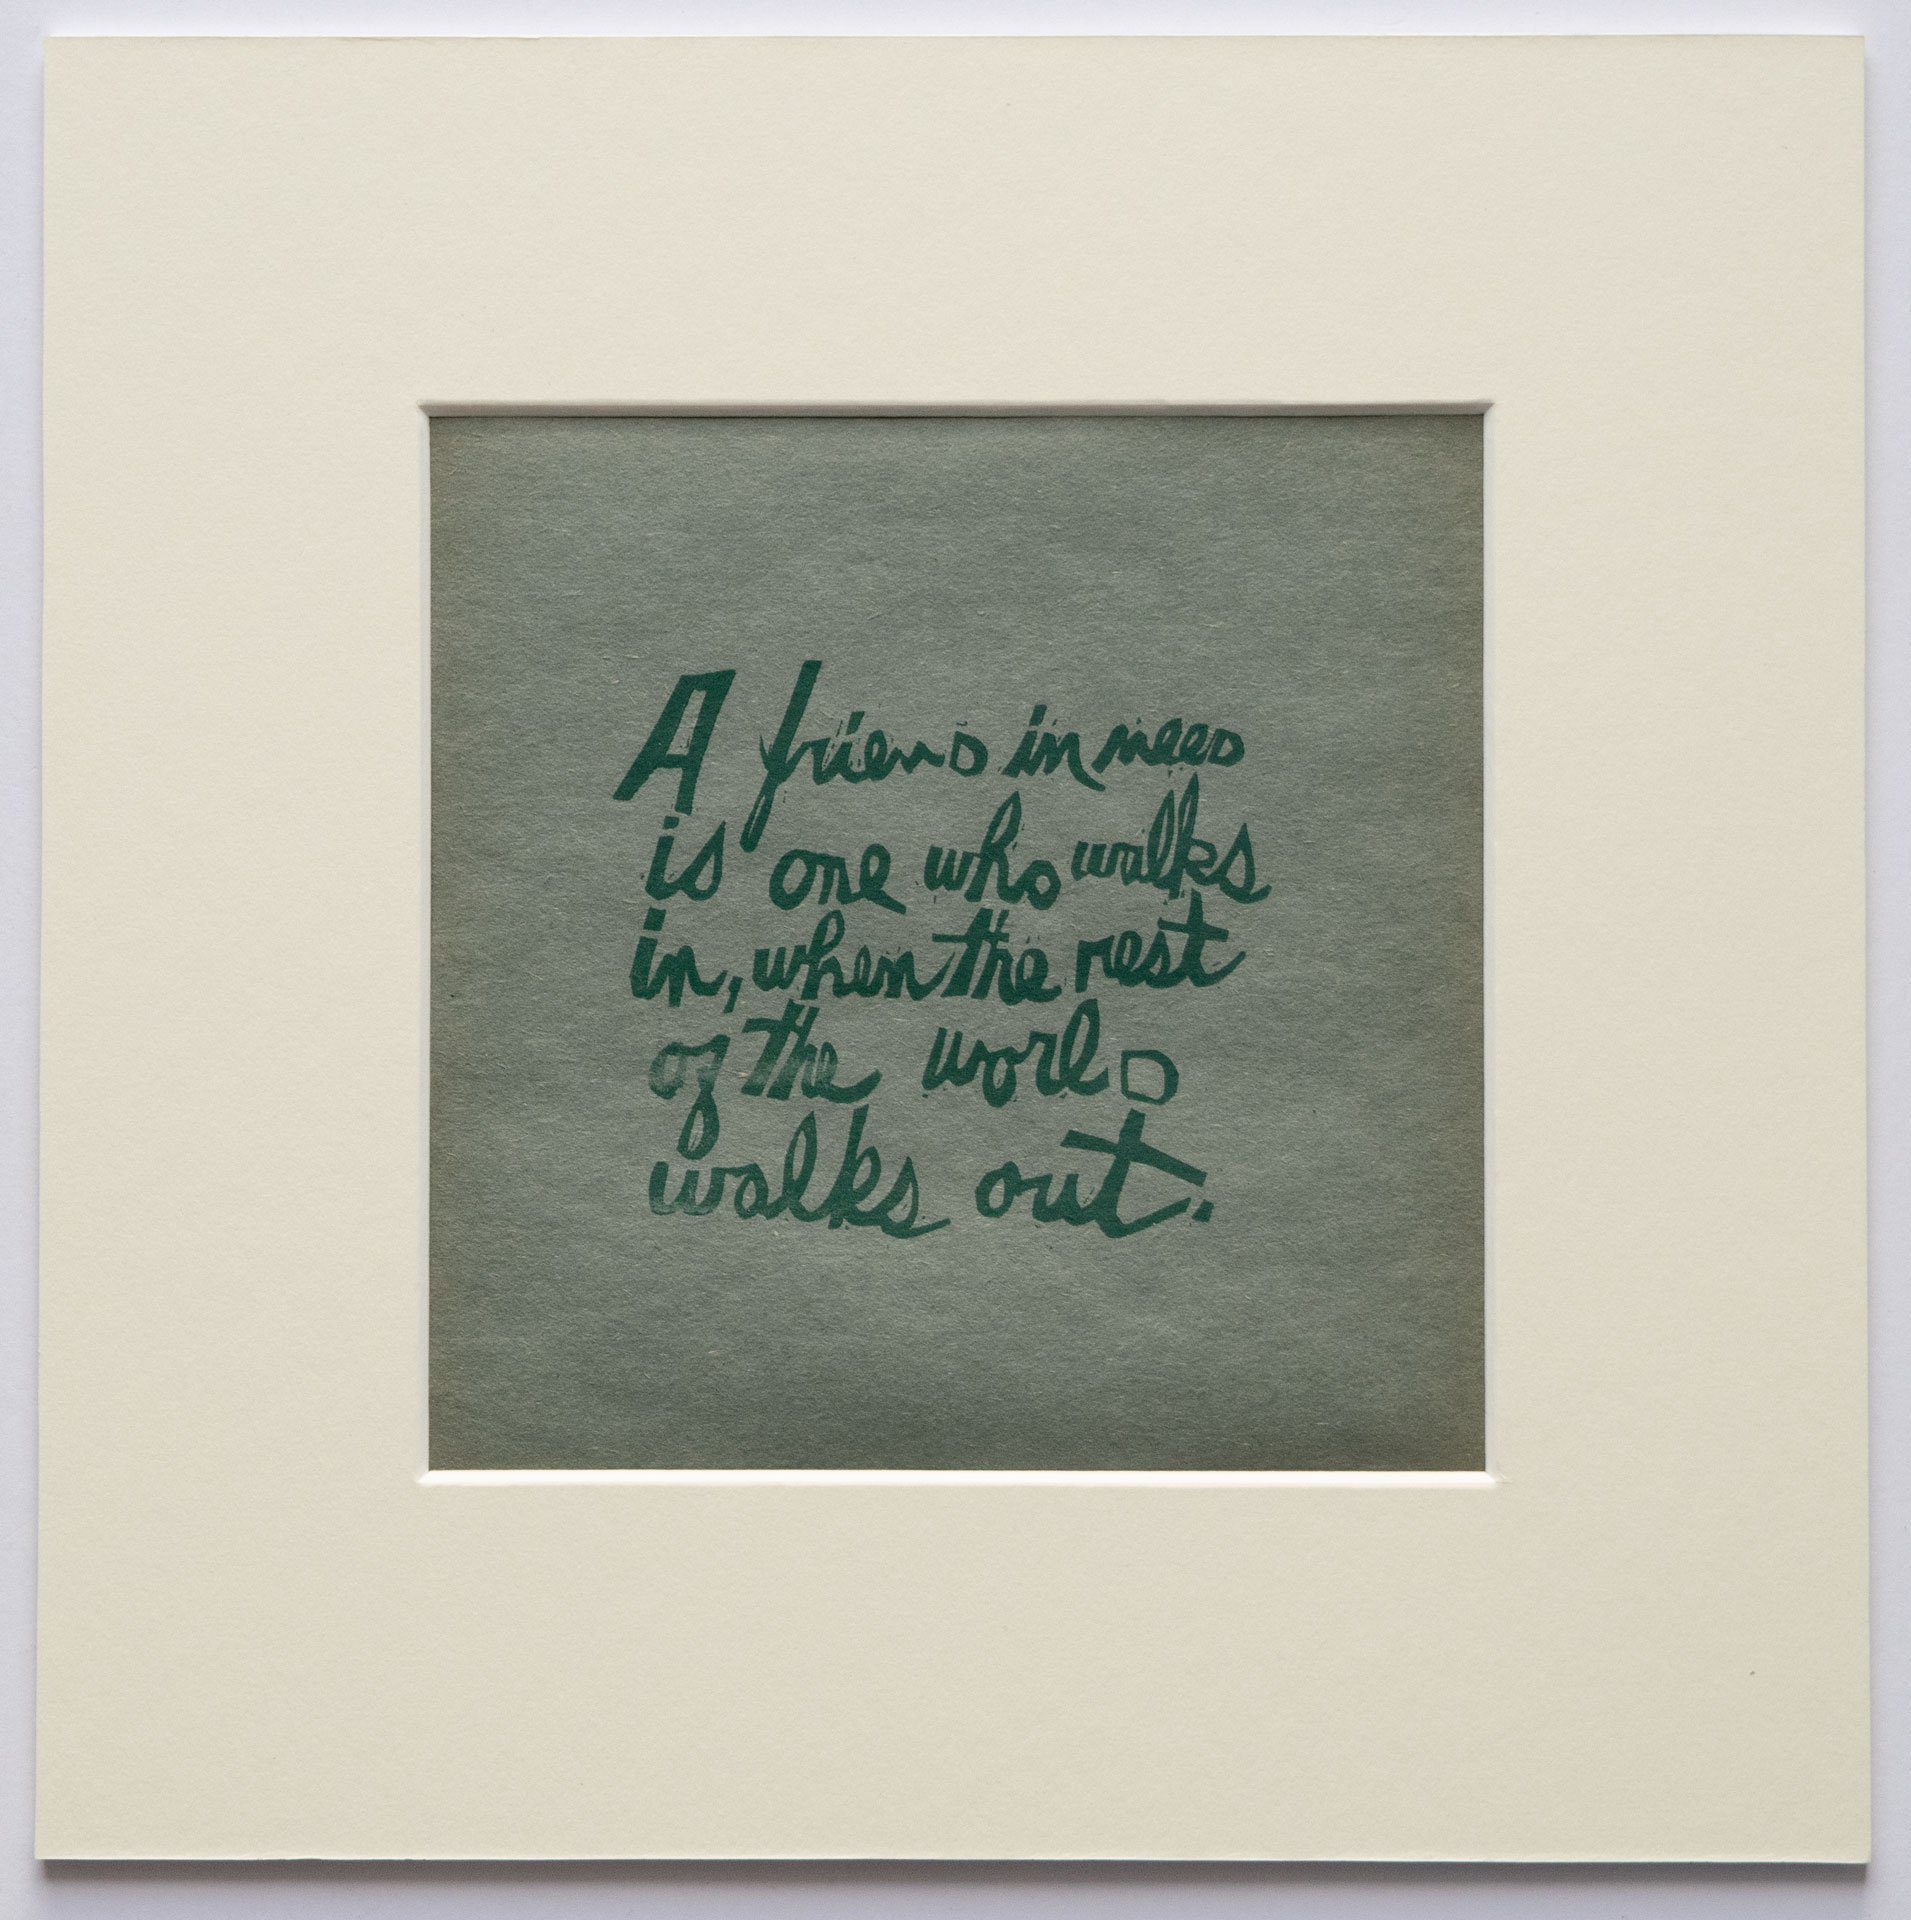 A friend in need
is one who walks
in, when the rest
of the world
walks out.